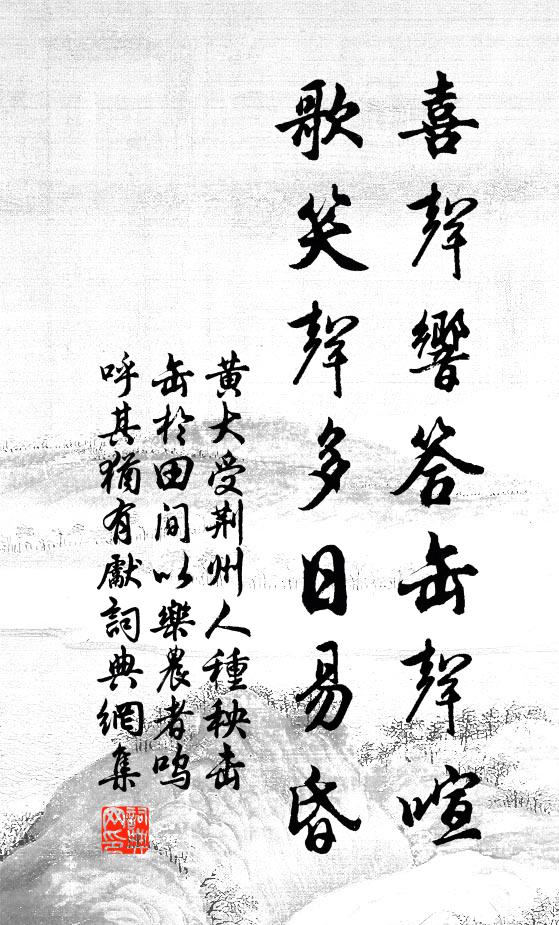 喜聲響答缶聲喧
歌笑聲多日易昏
黃大受荆州人種秧击
缶於田間以樂農者鸣
呼其猶有獻詞典網集